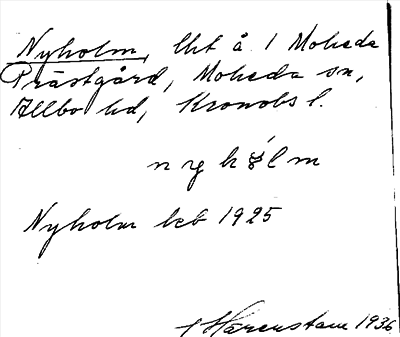 Nyholm, lht å 1 Moheda
Prästgård, Moheda sn,
Allbo hd, Kronobs l.
nyhólm
Nyholm keb 1925
Harenstam 1936